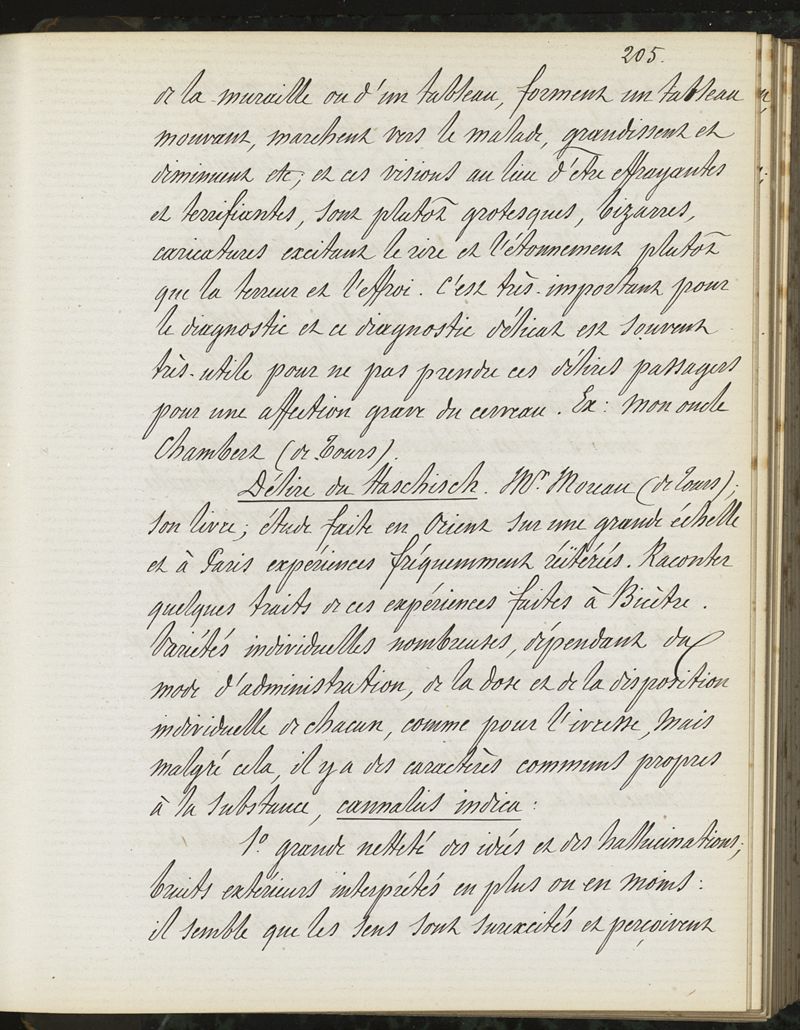 205.
de la muraille ou d'un tableau, forment un tableau
mouvant, marchent vers le malade, grandissent et
diminuent etc; et ces visions au lieu d'être effrayantes
et terrifiantes, sont plutôt grotesques, bizarres,
caricatures excitant le rire et l'étonnement plutôt
que la terreur et l'effroi. C'est très-important pour
le diagnostic et ce diagnostic délicat est souvent
très-utile pour ne pas prendre ces délires passagers
pour une affection grave du cerveau. Ex: mon oncle
Chambert (de Tours).
Délire du Haschisch. Mr. Moreau (de Tours);
son livre; étude faite en Orient sur une grande échelle
et à Paris expériences fréquemment réitérées. Raconter
quelques traits de ces expériences faites à Bicêtre.
Variétés individuelles nombreuses, dépendant du
mode d'administration, de la dose et de la disposition
individuelle de chacun, comme pour l'ivresse, mais
malgré cela, il y a des caractères communs propres
à la substance, cannabis indica:
1° grande netteté des idées et des hallucinations;
bruits extérieurs interprétés en plus ou en moins:
il semble que les sens sont surexcités et perçoivent